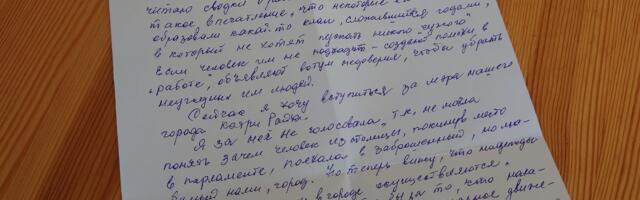 читаю сводки
такое впечатление, что некоторые
образовали какой-то клан, сложившийся годами,
в который не хотят пускать никого "чужого"
Если человек им не подходит - создают помехи в
работе, объявляют вотум недоверия, чтобы убрать
неугодных им людей.
Сейчас я хочу вступиться за мэра нашего
города Катри Райк.
Я за неё не голосовала, т.к. не могла
понять зачем человек из столицы, покинув место
в парламенте, поехала в заброшенный, но лю-
нами, город. Но теперь вижу, что надежды
в городе осуществляются.
то, что нала-
движе-